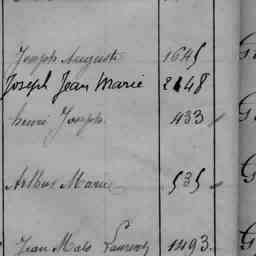 Joseph Auguste 1645
Joseph Jean Marie 2148
henri Joseph 433
Arthur Marie 535
Jean Malo Laurent 1293